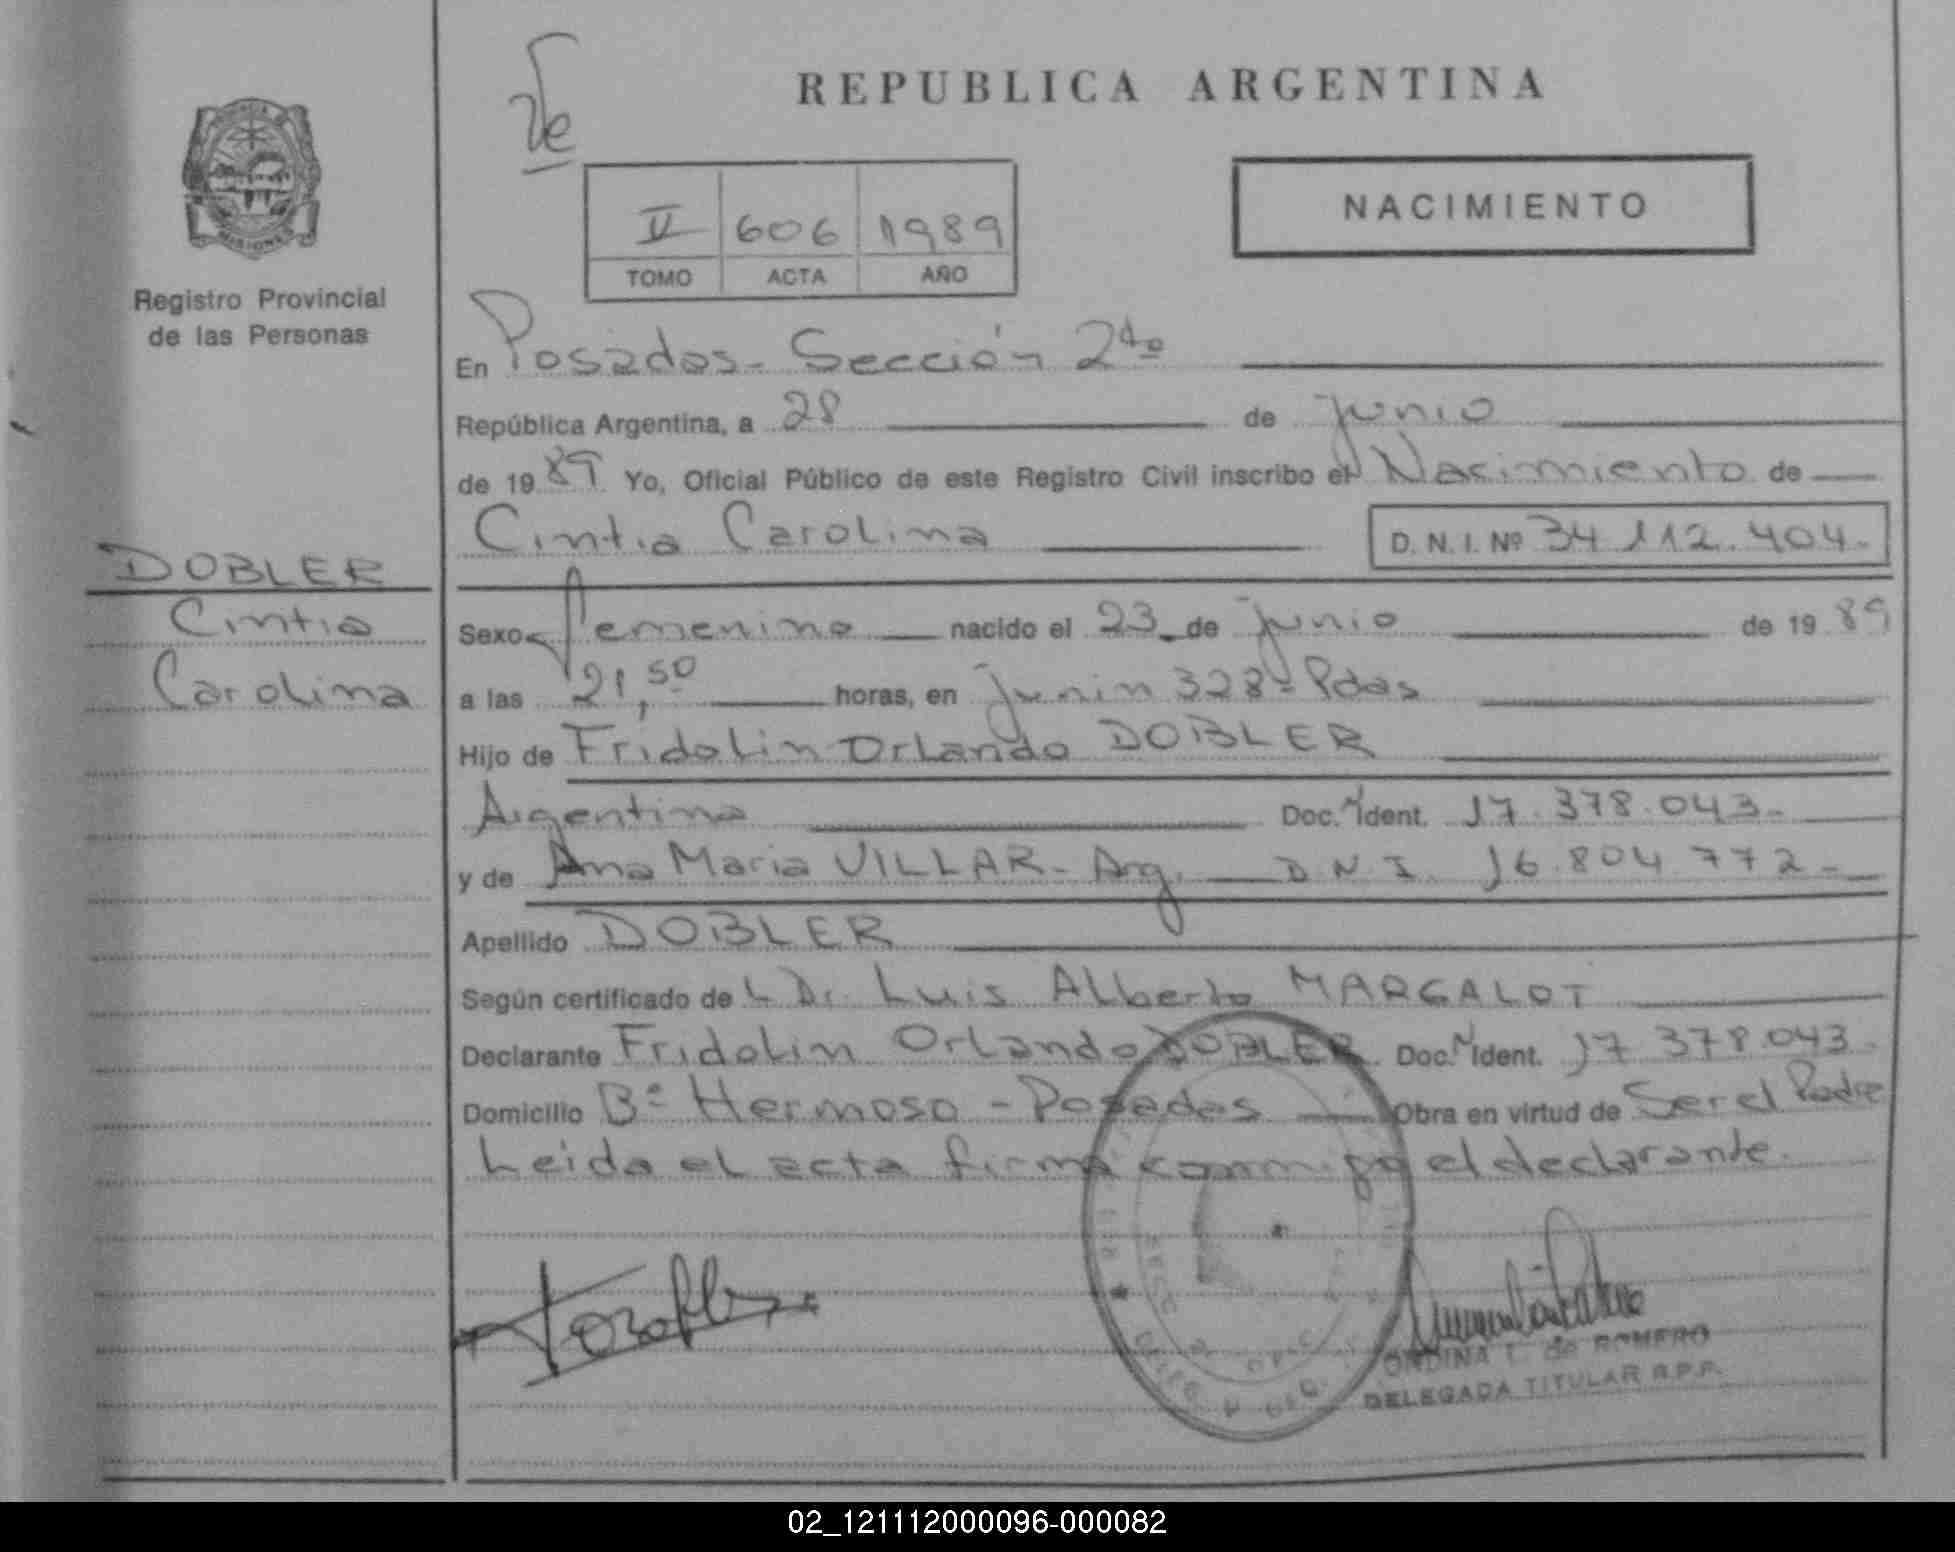 Ve
REPUBLICA ARGENTINA
NACIMIENTO
V 606 1989
TOMO ACTA AÑO
MISIONES
Registro Provincial
de las Personas
En Posadas - Sección 2da
República Argentina, a 28 de junio
de 1989 Yo, Oficial Público de este Registro Civil inscribo el Nacimiento de
Cintia Carolina D.N.I. Nº 34.112.404.-
DOBLER
Cintia
Carolina
Sexo femenino nacido el 23 de junio de 1989
a las 21,50 horas, en Junin 328 - Pdas
Hijo de Fridolin Orlando DOBLER
Argentino Doc. N Ident. 17.378.043.-
y de Ana Maria VILLAR - Arg. D.N.I. 16.804.772.-
Apellido DOBLER
Según certificado de L Dr. Luis Alberto MARGALOT
Declarante Fridolin Orlando DOBLER Doc. N Ident. 17.378.043.
Domicilio Bº Hermoso - Posadas Obra en virtud de Ser el Padre
Leida el acta firma conmigo el declarante.
ONDINA de ROMERO
DELEGADA TITULAR R.P.P.
02_121112000096-000082